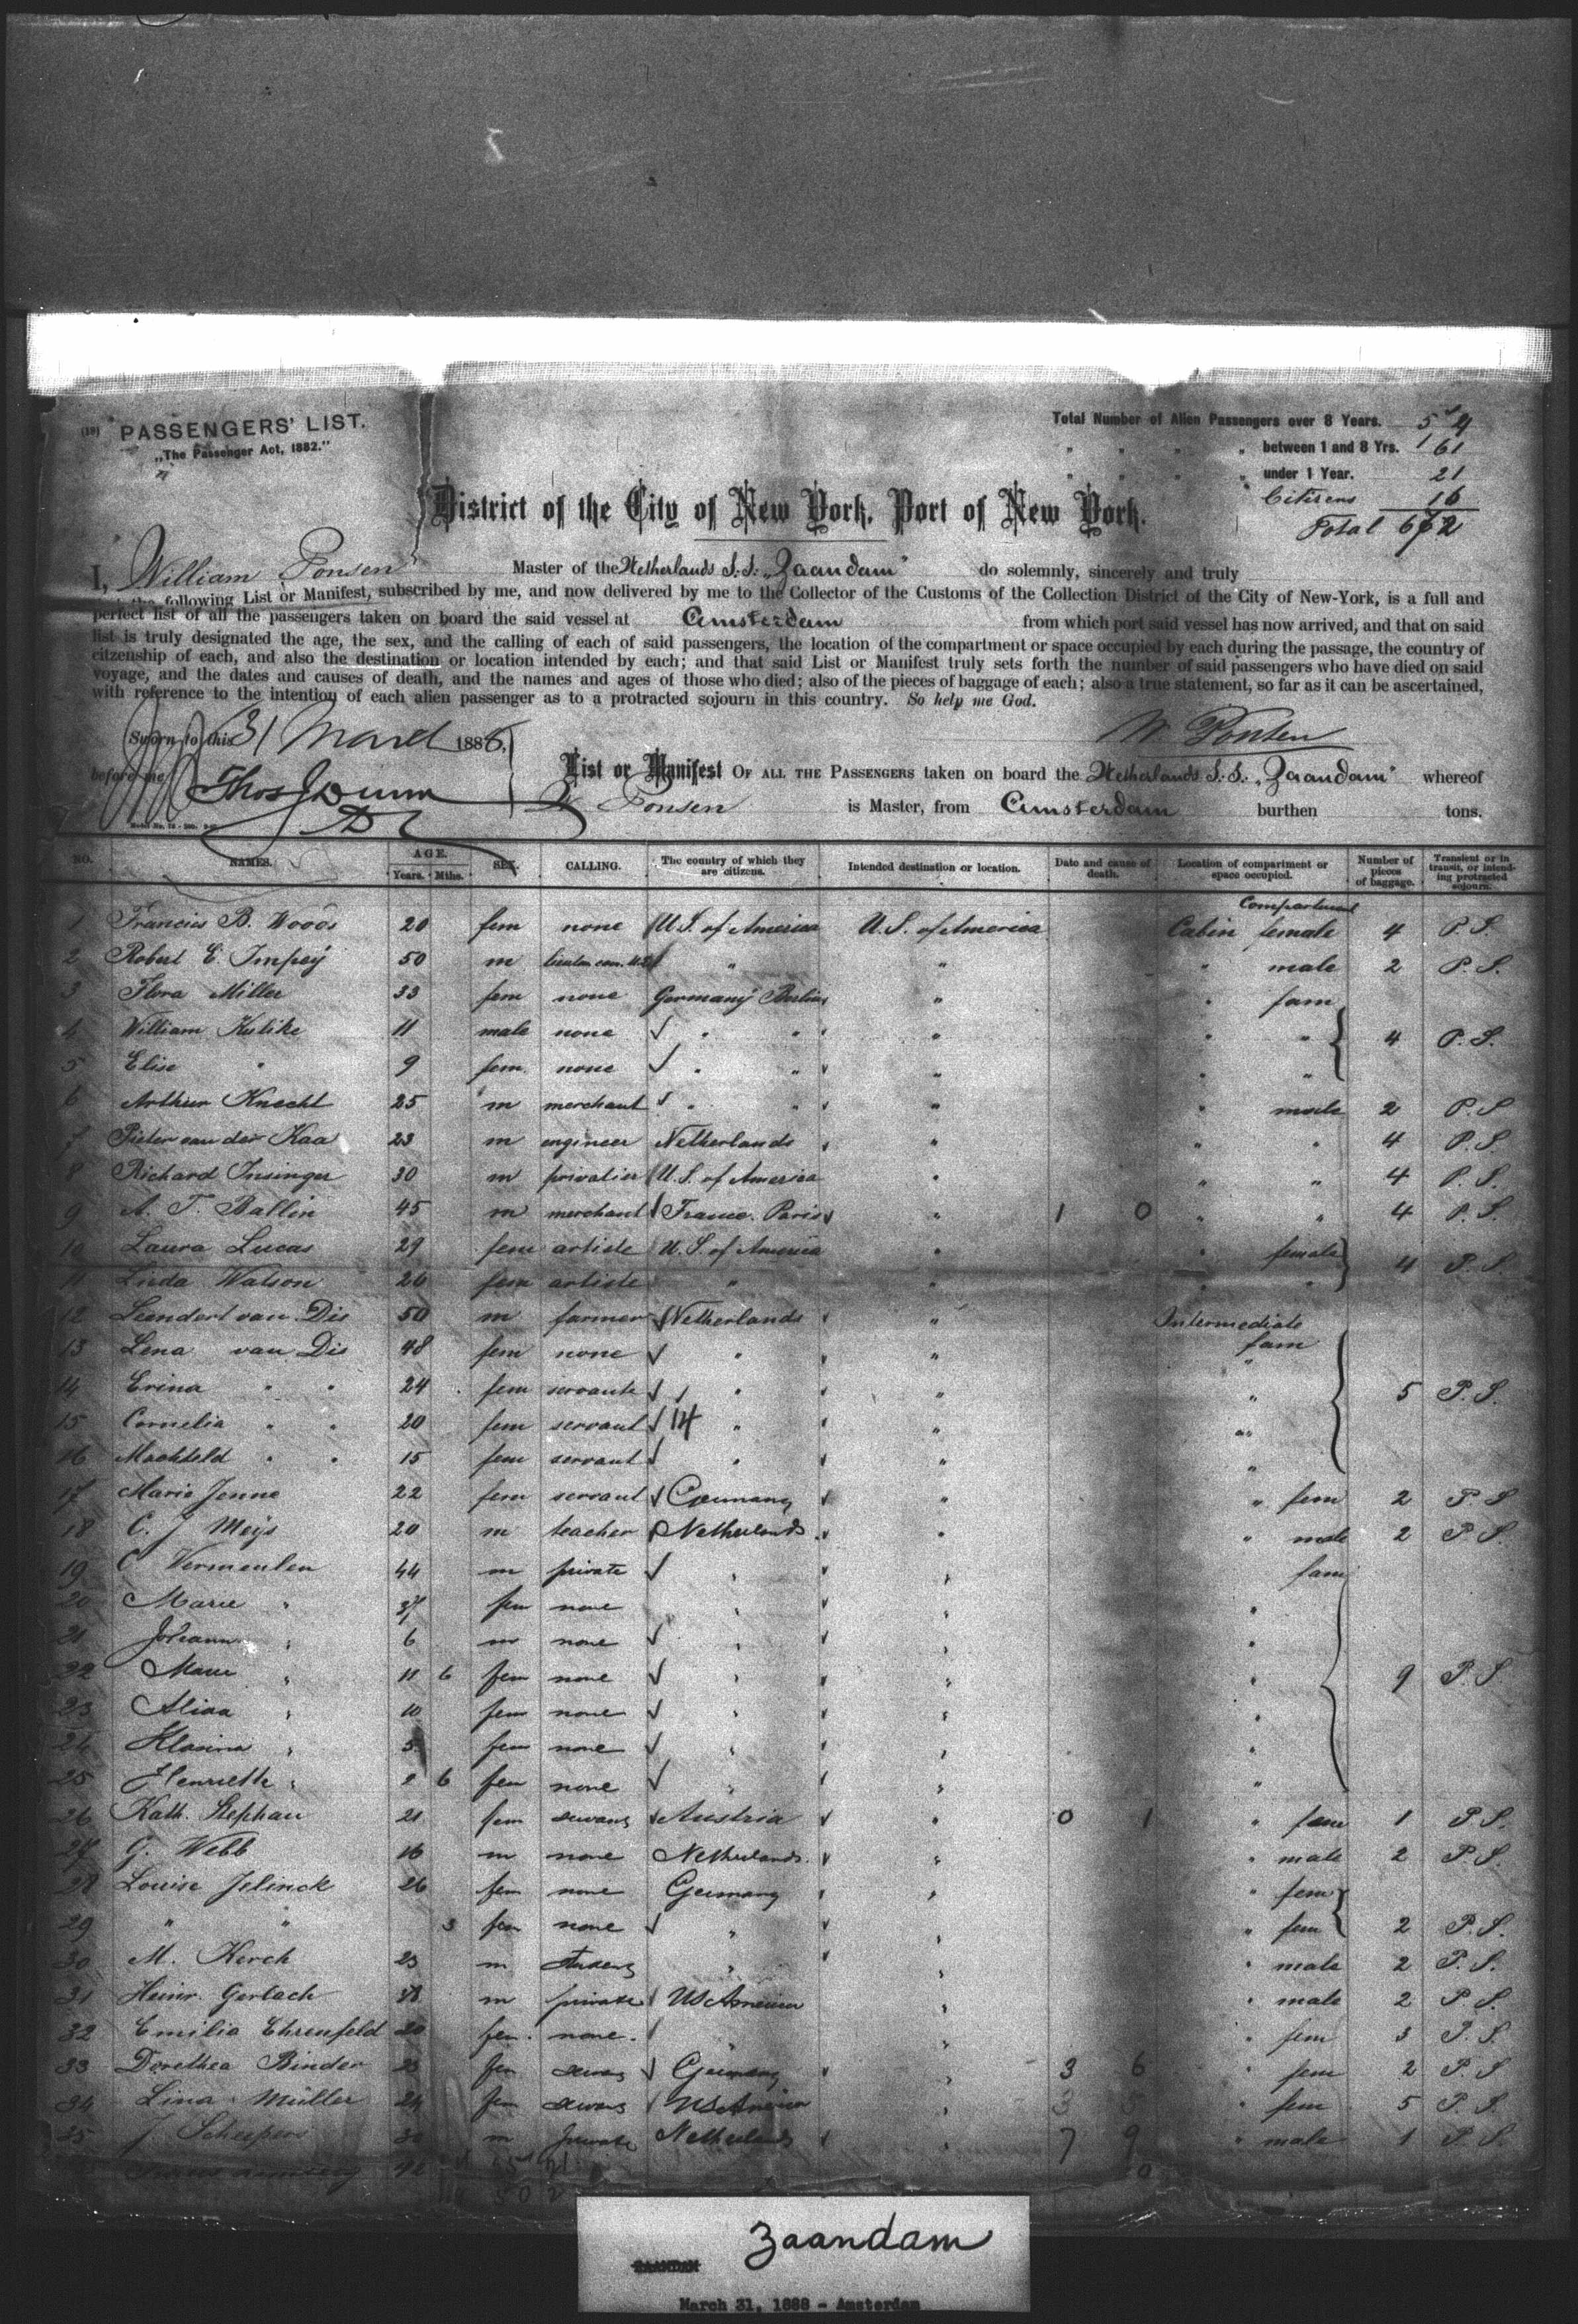 (19) PASSENGERS' LIST.
„The Passenger Act, 1882."
Total Number of Alien Passengers over 8 Years.
" " " " between 1 and 8 Yrs. 161
" " " " under 1 Year. 21
Citizens 16
Total 672
District of the City of New York, Port of New York.
I, William Ponsen Master of the Netherlands S.S. „Zaandam" do solemnly, sincerely and truly
the following List or Manifest, subscribed by me, and now delivered by me to the Collector of the Customs of the Collection District of the City of New-York, is a full and
perfect list of all the passengers taken on board the said vessel at Amsterdam from which port said vessel has now arrived, and that on said
list is truly designated the age, the sex, and the calling of each of said passengers, the location of the compartment or space occupied by each during the passage, the country of
citzenship of each, and also the destination or location intended by each; and that said List or Manifest truly sets forth the number of said passengers who have died on said
voyage, and the dates and causes of death, and the names and ages of those who died; also of the pieces of baggage of each; also a true statement, so far as it can be ascertained,
with reference to the intention of each alien passenger as to a protracted sojourn in this country. So help me God.
Sworn to this 31 March 1888, W. Ponsen
before me Thos J Dunn
List or Manifest OF ALL THE PASSENGERS taken on board the Netherlands S.S. „Zaandam" whereof
W. Ponsen is Master, from Amsterdam burthen tons.
NO. NAMES. AGE. Years. Mths. SEX. CALLING. The country of which they are citizens. Intended destination or location. Date and cause of death. Location of compartment or space occupied. Number of pieces of baggage. Transient or in transit, or intending protracted sojourn.
Compartment
1 Francis B. Woods 20 fem none U.S. of America U.S. of America Cabin female 4 P.S.
2 Robert E. Impey 50 m " " " male 2 P.S.
3 Flora Miller 33 fem none Germany Berlin " " fam
4 William Kulike 11 male none " " " " " 4 P.S.
5 Elise " 9 fem. none " " " " "
6 Arthur Knecht 25 m merchant " " " " male 2 P.S
7 Pieter van der Kaa 23 m engineer Netherlands " " " 4 P.S.
8 Richard Insinger 30 m privatier U.S. of America " " " 4 P.S.
9 A. T. Ballin 45 m merchant France. Paris " 1 0 " " 4 P.S.
10 Laura Lucas 29 fem artiste U.S. of America " " female 4 P.S.
11 Linda Watson 26 fem artiste " " " "
12 Leendert van Dis 50 m farmer Netherlands " Intermediate
13 Lena van Dis 48 fem none " " " fam
14 Erina " " 24 fem servante " " " 5 P.S.
15 Cornelia " " 20 fem servant 14 " " "
16 Machteld " " 15 fem servant " " "
17 Maria Jenne 22 fem servant Germany " " fem 2 P.S
18 C. J Meijs 20 m teacher Netherlands " " male 2 P.S.
19 C Vermeulen 44 m private " " fam
20 Marie " 37 fem none " " "
21 Johann " 6 m none " " "
22 Marie " 11 6 fem none " " " 9 P.S.
23 Alida " 10 fem none " " "
24 Klasina " 5 fem none " " "
25 Henriette " 2 6 fem none " " "
26 Kath. Stephan 21 fem servant Austria " 0 1 " fem 1 P.S.
27 G. Webb 16 m none Netherlands " " male 2 P.S.
28 Louise Jelinck 26 fem none Germany " " fem
29 " " 3 fem none " " " fem 2 P.S.
30 M. Kerch 23 m " " " male 2 P.S.
31 Heinr. Gerlach 38 m private US America " " male 2 P.S.
32 Emilia Ehrenfeld 20 fem. none. " " " fem 3 P.S.
33 Dorethea Binder 23 fem servant Germany " 3 6 " fem 2 P.S
34 Lina Müller 24 fem servant US America " " fem 5 P.S.
35 J Scheepers 30 m private Netherlands " 7 9 " male 1 P.S.
Zaandam
ZAANDAM
March 31, 1888 - Amsterdam